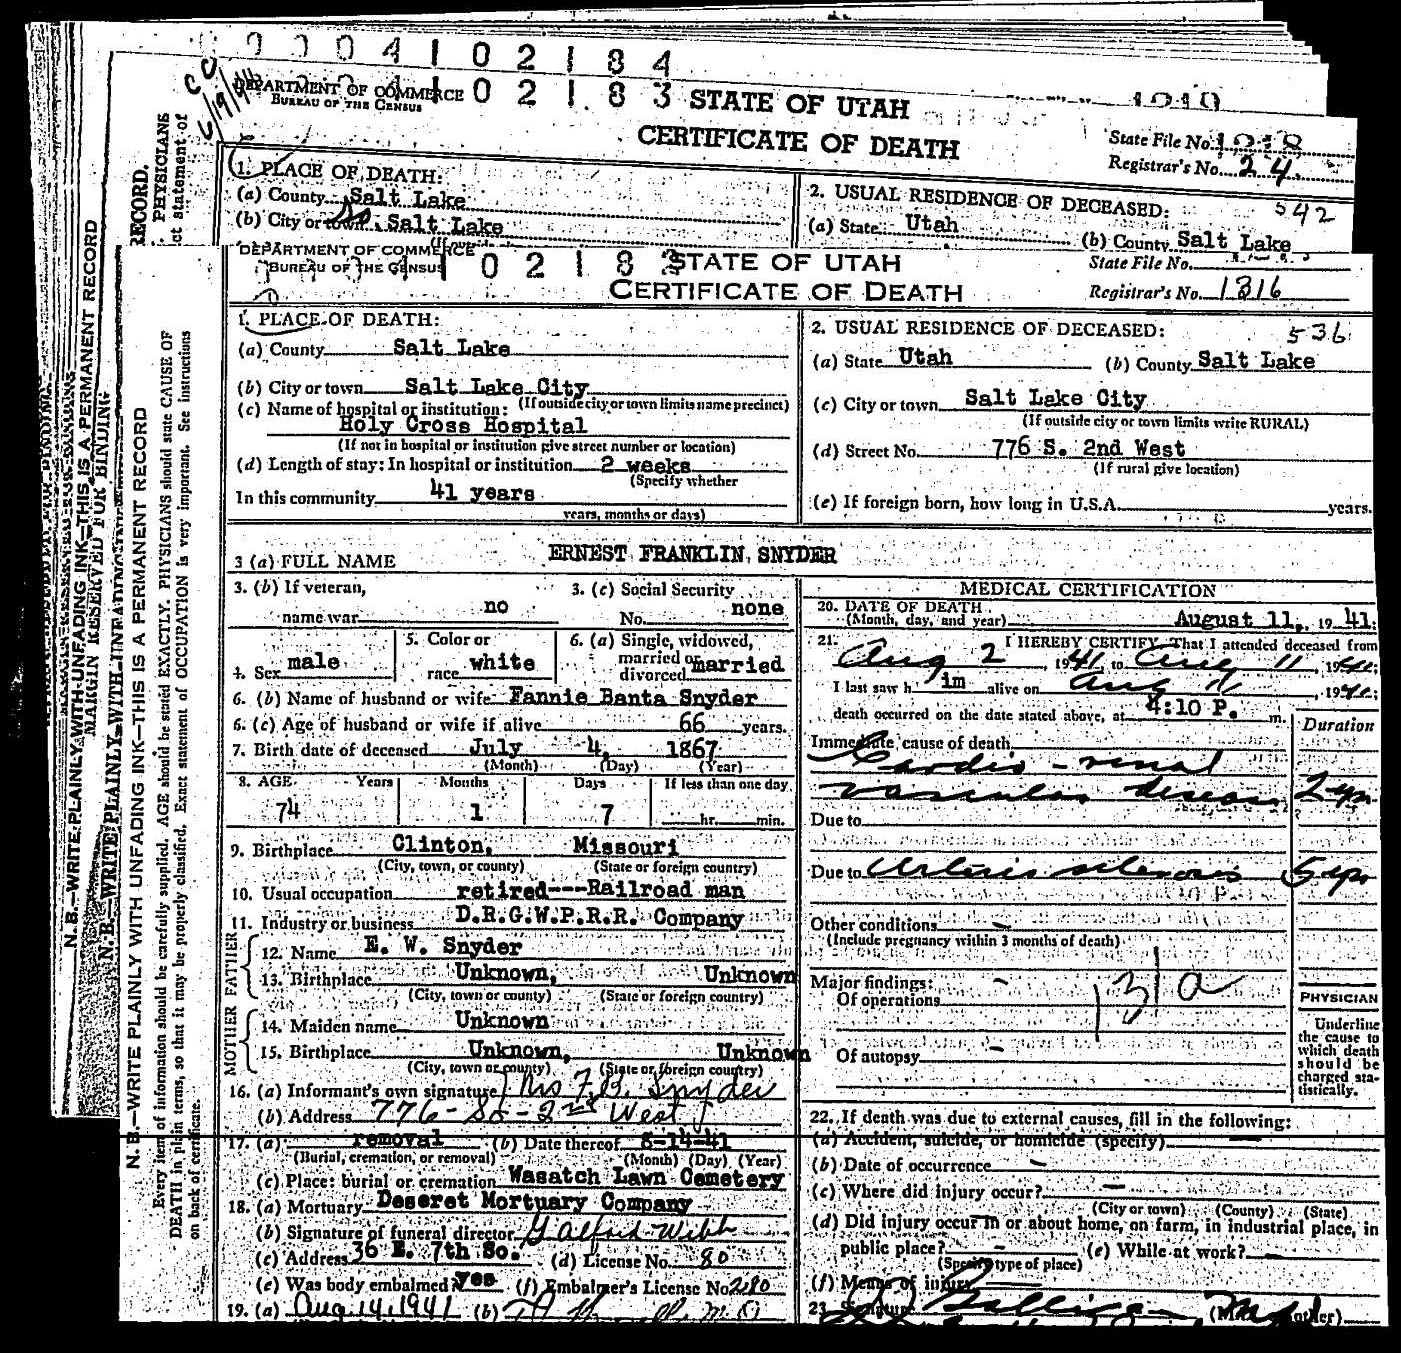 0 0 0 4 1 0 2 1 8 4
DEPARTMENT OF COMMERCE
BUREAU OF THE CENSUS
1 0 2 1 8 3
STATE OF UTAH
CERTIFICATE OF DEATH
State File No.
Registrar's No. 24.
1. PLACE OF DEATH:
(a) County Salt Lake
(b) City or town So. Salt Lake
2. USUAL RESIDENCE OF DECEASED: 542
(a) State Utah (b) County Salt Lake
DEPARTMENT OF COMMERCE
BUREAU OF THE CENSUS
1 0 2 1 8 2
STATE OF UTAH
CERTIFICATE OF DEATH
State File No.
Registrar's No. 1316
1. PLACE OF DEATH:
(a) County Salt Lake
(b) City or town Salt Lake City
(If outside city or town limits name precinct)
(c) Name of hospital or institution:
Holy Cross Hospital
(If not in hospital or institution give street number or location)
(d) Length of stay: In hospital or institution 2 weeks
(Specify whether
In this community 41 years
years, months or days)
2. USUAL RESIDENCE OF DECEASED: 536
(a) State Utah (b) County Salt Lake
(c) City or town Salt Lake City
(If outside city or town limits write RURAL)
(d) Street No. 776 S. 2nd West
(If rural give location)
(e) If foreign born, how long in U.S.A. years.
3 (a) FULL NAME ERNEST FRANKLIN SNYDER
3. (b) If veteran,
name war no
3. (c) Social Security
No. none
4. Sex male
5. Color or
race white
6. (a) Single, widowed,
married or
divorced married
6. (b) Name of husband or wife Fannie Banta Snyder
6. (c) Age of husband or wife if alive 66 years.
7. Birth date of deceased July 4, 1867
(Month) (Day) (Year)
8. AGE Years Months Days If less than one day
74 1 7 hr. min.
9. Birthplace Clinton, Missouri
(City, town, or county) (State or foreign country)
10. Usual occupation retired---Railroad man
11. Industry or business D.R.G.W.P.R.R. Company
FATHER
12. Name E. W. Snyder
13. Birthplace Unknown, Unknown
(City, town or county) (State or foreign country)
MOTHER
14. Maiden name Unknown
15. Birthplace Unknown, Unknown
(City, town or county) (State or foreign country)
16. (a) Informant's own signature Mrs F. B. Snyder
(b) Address 776-So-2nd West
17. (a) removal (b) Date thereof 8-14-41
(Burial, cremation, or removal) (Month) (Day) (Year)
(c) Place: burial or cremation Wasatch Lawn Cemetery
18. (a) Mortuary Deseret Mortuary Company
(b) Signature of funeral director Galford Webb
(c) Address 36 E. 7th So. (d) License No. 80
(e) Was body embalmed? yes (f) Embalmer's License No. 290
19. (a) Aug 14, 1941 (b)
MEDICAL CERTIFICATION
20. DATE OF DEATH
(Month, day, and year) August 11, 19 41.
21. I HEREBY CERTIFY, That I attended deceased from
Aug 2, 1941 to Aug 11 1941;
I last saw h im alive on Aug 11, 1941;
death occurred on the date stated above, at 4:10 P. m.
Duration
Immediate cause of death
Cardio-renal
vascular disease 2 yrs
Due to
Due to Arterio sclerosis 5 yrs
Other conditions -
(Include pregnancy within 3 months of death)
Major findings:
Of operations -
131a
Of autopsy -
PHYSICIAN
Underline
the cause to
which death
should be
charged sta-
tistically.
22. If death was due to external causes, fill in the following:
(a) Accident, suicide, or homicide (specify) -
(b) Date of occurrence -
(c) Where did injury occur? -
(City or town) (County) (State)
(d) Did injury occur in or about home, on farm, in industrial place, in
public place? - (e) While at work? -
(Specify type of place)
(f) Means of injury
23. Signature
N. B.—WRITE PLAINLY WITH UNFADING INK—THIS IS A PERMANENT RECORD
Every item of information should be carefully supplied. AGE should be stated EXACTLY. PHYSICIANS should state CAUSE OF
DEATH in plain terms, so that it may be properly classified. Exact statement of OCCUPATION is very important. See instructions
on back of certificate.
N. B.—WRITE PLAINLY WITH UNFADING INK—THIS IS A PERMANENT RECORD
MARGIN RESERVED FOR BINDING
RECORD.
PHYSICIANS